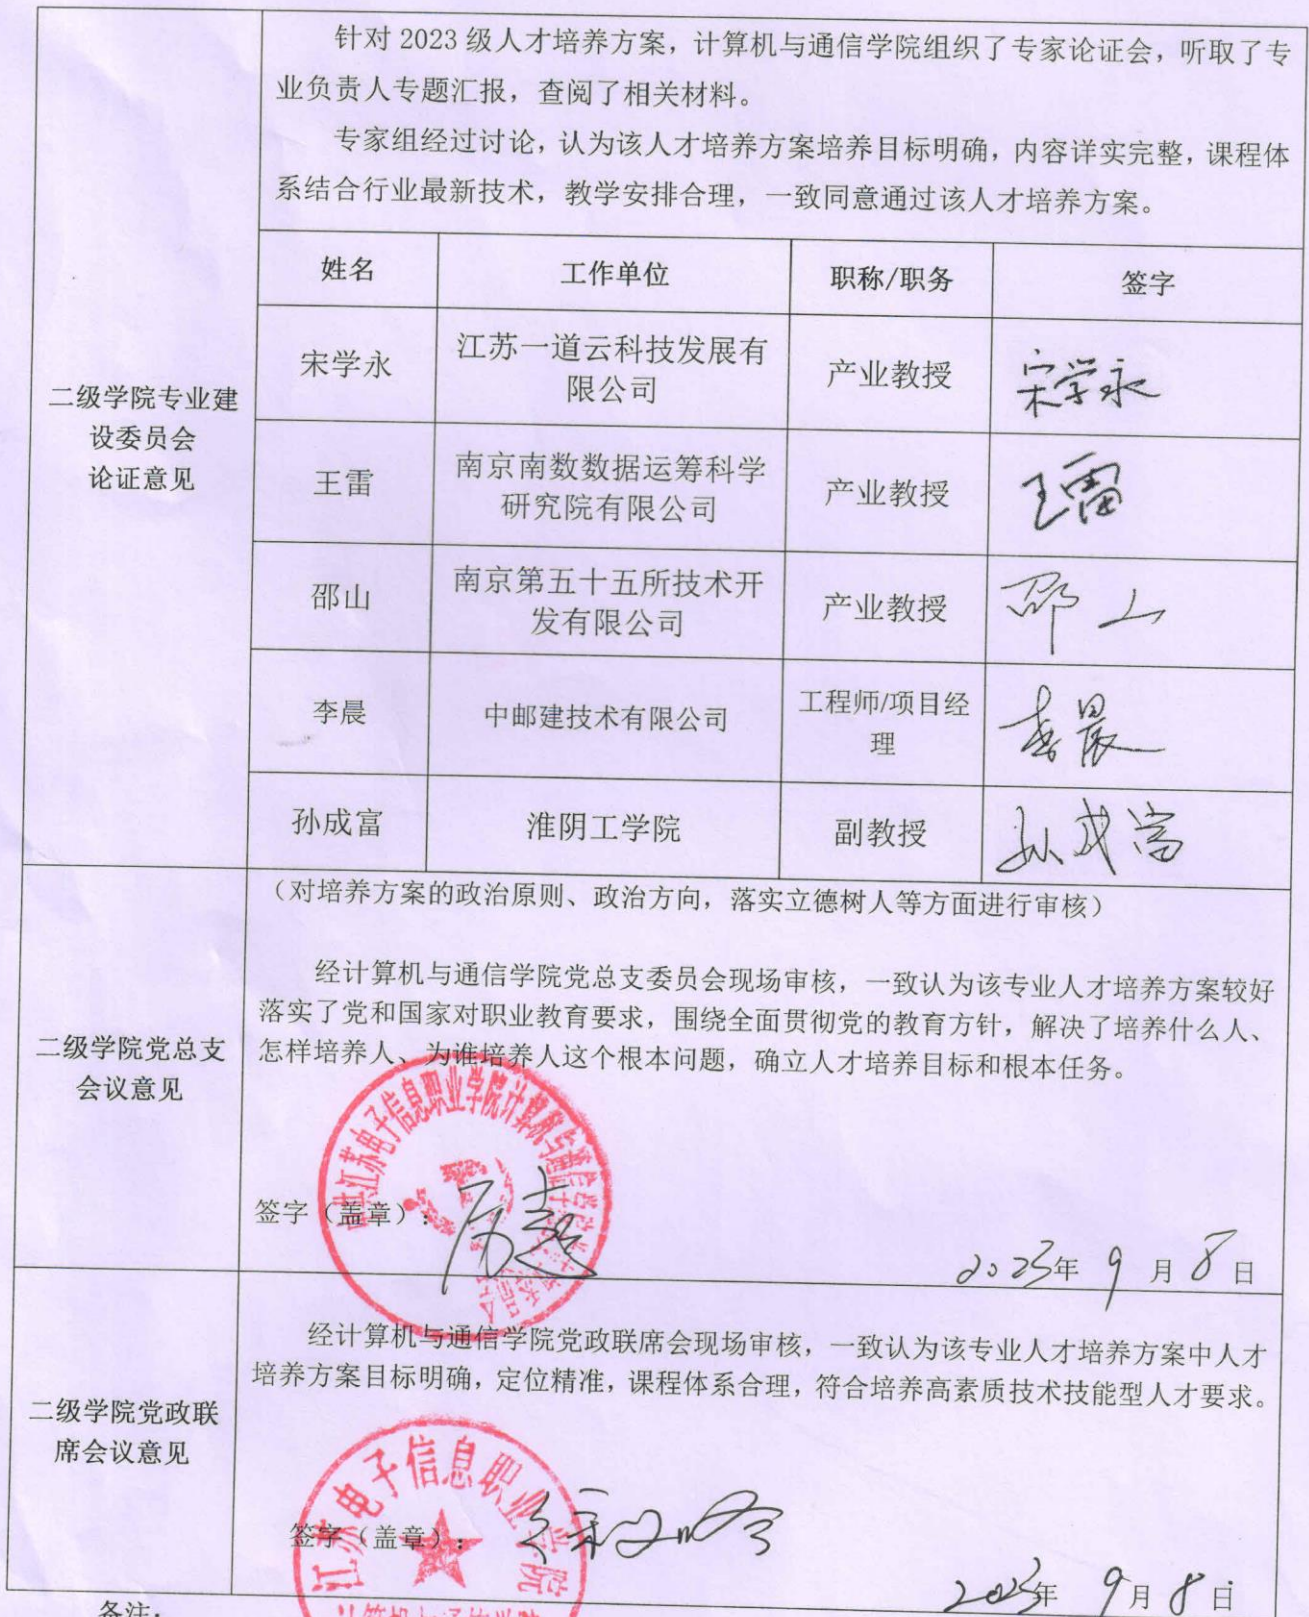 针对 2023 级人才培养方案，计算机与通信学院组织了专家论证会，听取了专
业负责人专题汇报，查阅了相关材料。
专家组经过讨论，认为该人才培养方案培养目标明确，内容详实完整，课程体
系结合行业最新技术，教学安排合理，一致同意通过该人才培养方案。
二级学院专业建
设委员会
论证意见
姓名 工作单位 职称/职务 签字
宋学永 江苏一道云科技发展有
限公司 产业教授 宋学永
王雷 南京南数数据运筹科学
研究院有限公司 产业教授 王雷
邵山 南京第五十五所技术开
发有限公司 产业教授 邵山
李晨 中邮建技术有限公司 工程师/项目经
理 李晨
孙成富 淮阴工学院 副教授 孙成富
二级学院党总支
会议意见
（对培养方案的政治原则、政治方向，落实立德树人等方面进行审核）
经计算机与通信学院党总支委员会现场审核，一致认为该专业人才培养方案较好
落实了党和国家对职业教育要求，围绕全面贯彻党的教育方针，解决了培养什么人、
怎样培养人、为谁培养人这个根本问题，确立人才培养目标和根本任务。
江苏电子信息职业学院计算机与通信学院
签字（盖章）：
2023年 9 月 8 日
二级学院党政联
席会议意见
经计算机与通信学院党政联席会现场审核，一致认为该专业人才培养方案中人才
培养方案目标明确，定位精准，课程体系合理，符合培养高素质技术技能型人才要求。
江苏电子信息职业学院
签字（盖章）：
计算机与通信学院
2023年 9月 8日
备注：